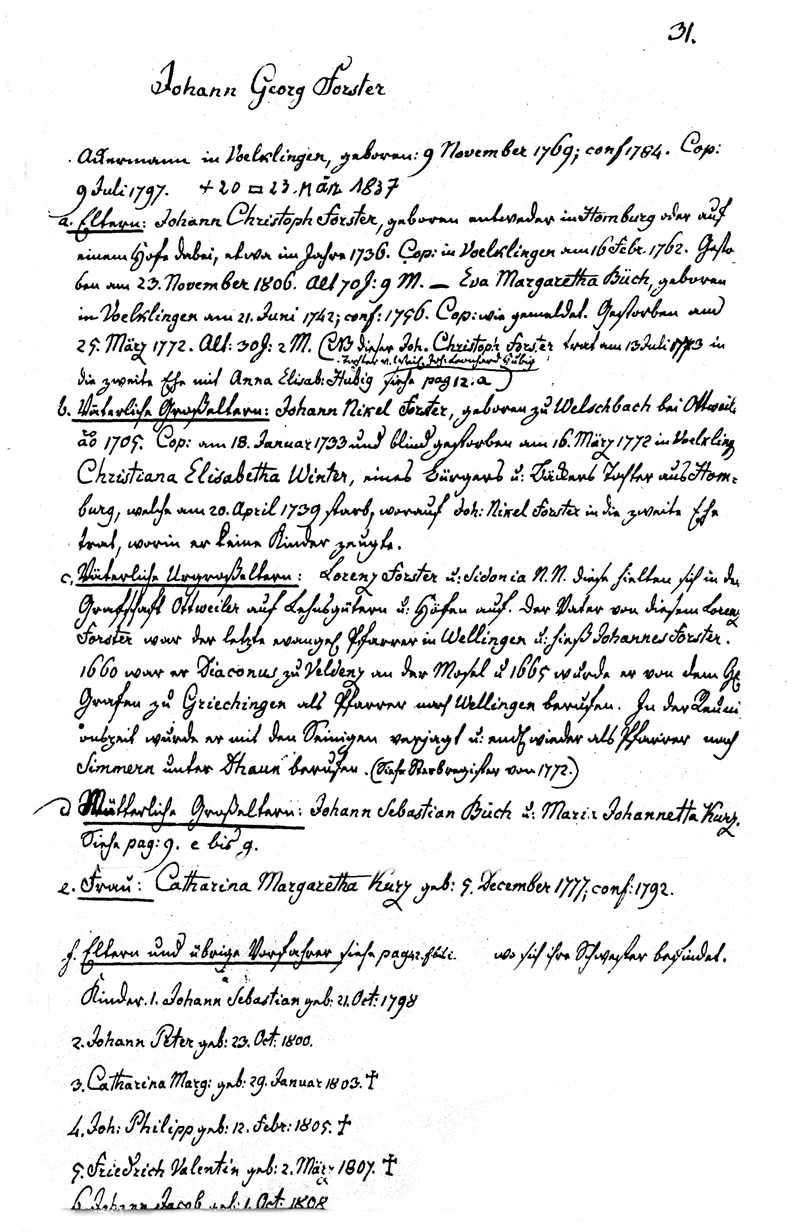 31.
Johann Georg Forster
Ackermann in Voelklingen, geboren: 9 November 1769; conf 1784. Cop:
9 Juli 1797. + 20 = 23. März 1837
a. Eltern: Johann Christoph Forster, geboren entweder in Homburg oder auf
einem Hofe dabei, etwa im Jahre 1736. Cop: in Voelklingen am 16 Febr. 1762. Gestor-
ben am 23. November 1806. Alt 70 J: 9 M. — Eva Margaretha Büch, geboren
in Voelklingen am 21. Juni 1742; conf: 1756. Cop: wie gemeldet. Gestorben am
25. März 1772. Alt: 30 J: 2 M. (NB dieser Joh. Christoph Forster trat am 13 Juli 1773 in
Tochter v. Weil. Joh. Leonhard Hubig
die zweite Ehe mit Anna Elisab: Hubig siehe pag 12. a)
b. Väterliche Großeltern: Johann Nikel Forster, geboren zu Welschbach bei Ottweil.
ao 1705. Cop: am 18. Januar 1733 und blind gestorben am 16. März 1772 in Voelkling
Christiana Elisabetha Winter, eines Bürgers u: Bäckers Tochter aus Hom-
burg, welche am 20. April 1739 starb, worauf Joh: Nikel Forster in die zweite Ehe
trat, worin er keine Kinder zeugte.
c. Väterliche Urgroßeltern: Lorenz Forster u: Sidonia N.N. diese hielten sich in der
Grafschaft Ottweiler auf Lehnsgütern u: Höfen auf. Der Vater von diesem Lorenz
Forster war der letzte evangel Pfarrer in Wellingen u: hieß Johannes Forster.
1660 war er Diaconus zu Veldenz an der Mosel u 1665 wurde er von dem
Grafen zu Griechingen als Pfarrer nach Wellingen berufen. In der Reuni
onszeit wurde er mit den Seinigen verjagt u: endl wieder als Pfarrer nach
Simmern unter Dhaun berufen. (Siehe Sterbregister von 1772.)
d Mütterliche Großeltern: Johann Sebastian Büch u: Maria Johannetta Kurz.
Siehe pag: 9. e bis g.
e. Frau: Catharina Margaretha Kurz geb: 5. December 1777; conf: 1792.
f. Eltern und übrige Vorfahrer siehe pag 42. wo sich ihre Schwester befindet.
Kinder. 1. Johann Sebastian geb: 21. Oct: 1798
2. Johann Peter geb: 23. Oct: 1800.
3. Catharina Marg: geb: 29. Januar 1803. †
4. Joh: Philipp geb: 12. Febr: 1805. †
5. Friedrich Valentin geb: 2. März 1807. †
6. Johann Jacob geb: 1. Oct: 1808